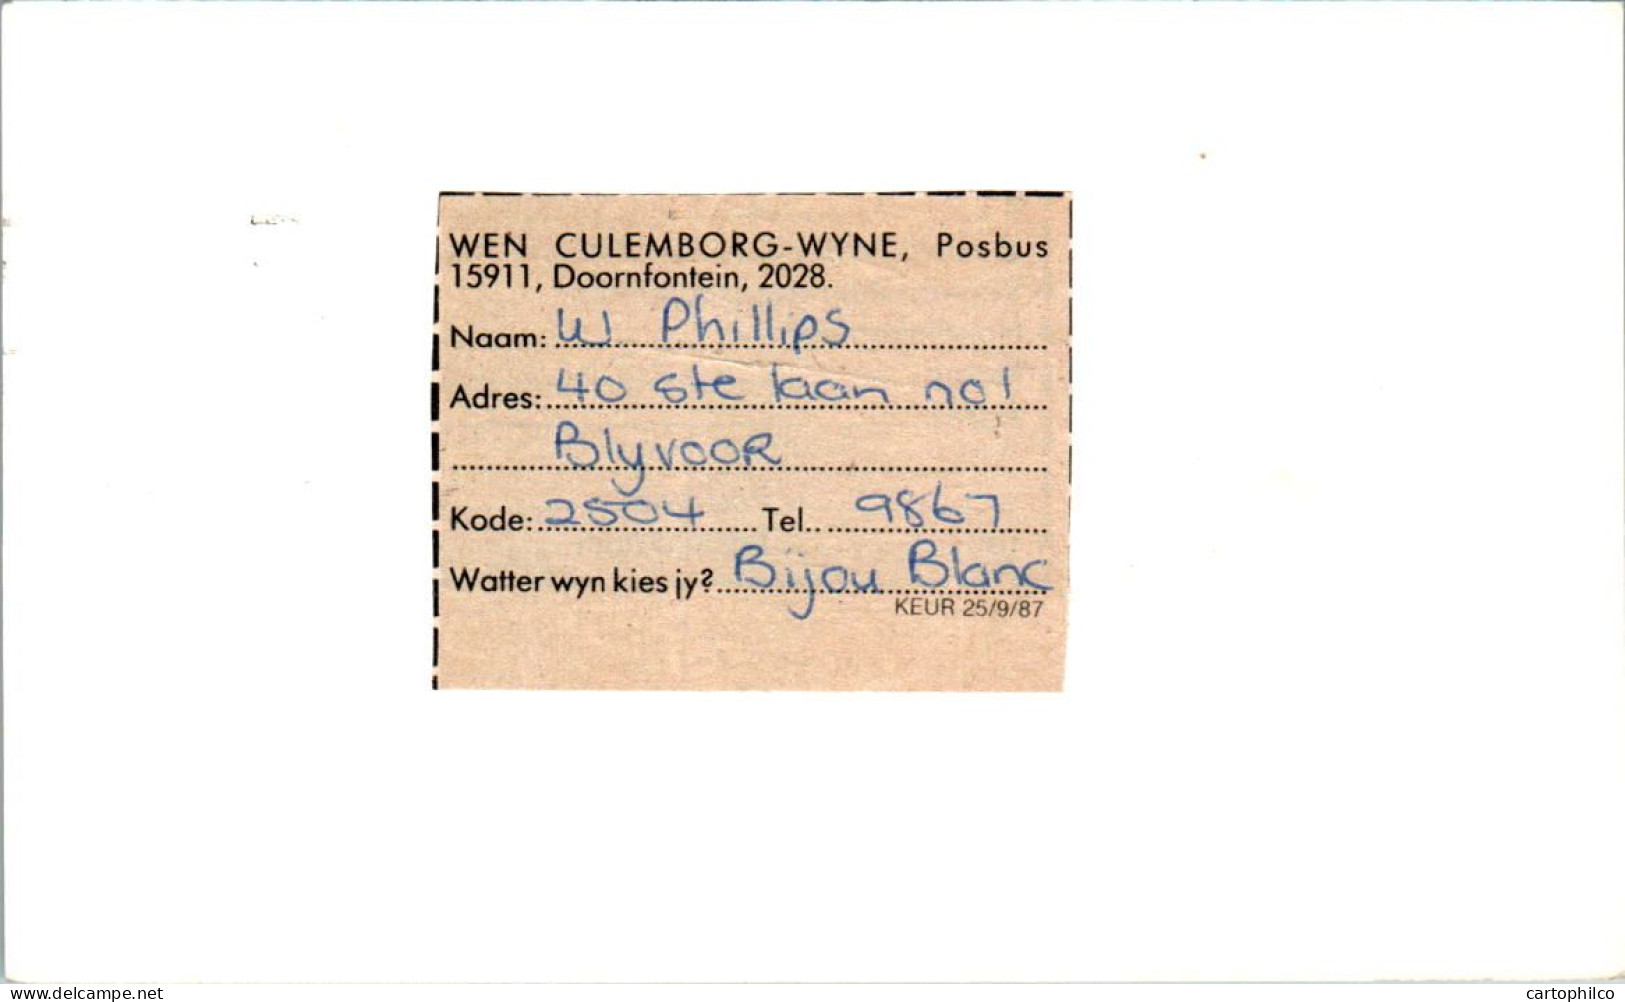 WEN CULEMBORG-WYNE, Posbus
15911, Doornfontein, 2028.
Naam: W Phillips
Adres: 40 ste laan no 1
Blyvoor
Kode: 2504 Tel. 9867
Watter wyn kies jy? Bijou Blanc
KEUR 25/9/87
www.delcampe.net
cartophilco